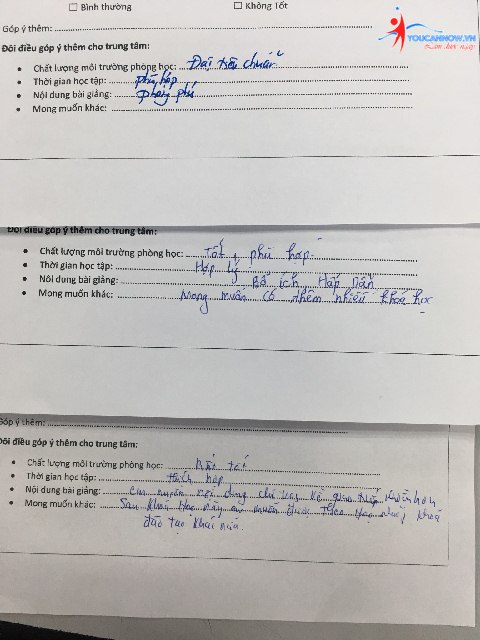 ☐ Bình thường ☐ Không Tốt
YOUCANNOW.VN
Làm học ngay
Góp ý thêm:
Đôi điều góp ý thêm cho trung tâm:
• Chất lượng môi trường phòng học: Đạt tiêu chuẩn
• Thời gian học tập: phù hợp
• Nội dung bài giảng: phong phú
• Mong muốn khác:
Đôi điều góp ý thêm cho trung tâm:
• Chất lượng môi trường phòng học: Tốt, phù hợp.
• Thời gian học tập: Hợp lý
• Nội dung bài giảng: Bổ ích, Hấp Dẫn
• Mong muốn khác: Mong muốn có thêm nhiều khoá học
Góp ý thêm:
Đôi điều góp ý thêm cho trung tâm:
• Chất lượng môi trường phòng học:
• Thời gian học tập: thích hợp
• Nội dung bài giảng: em muốn nội dung chú trọng về giao tiếp nhiều hơn
• Mong muốn khác: Sau khoá học này em muốn được theo học những khoá
đào tạo khác nữa.